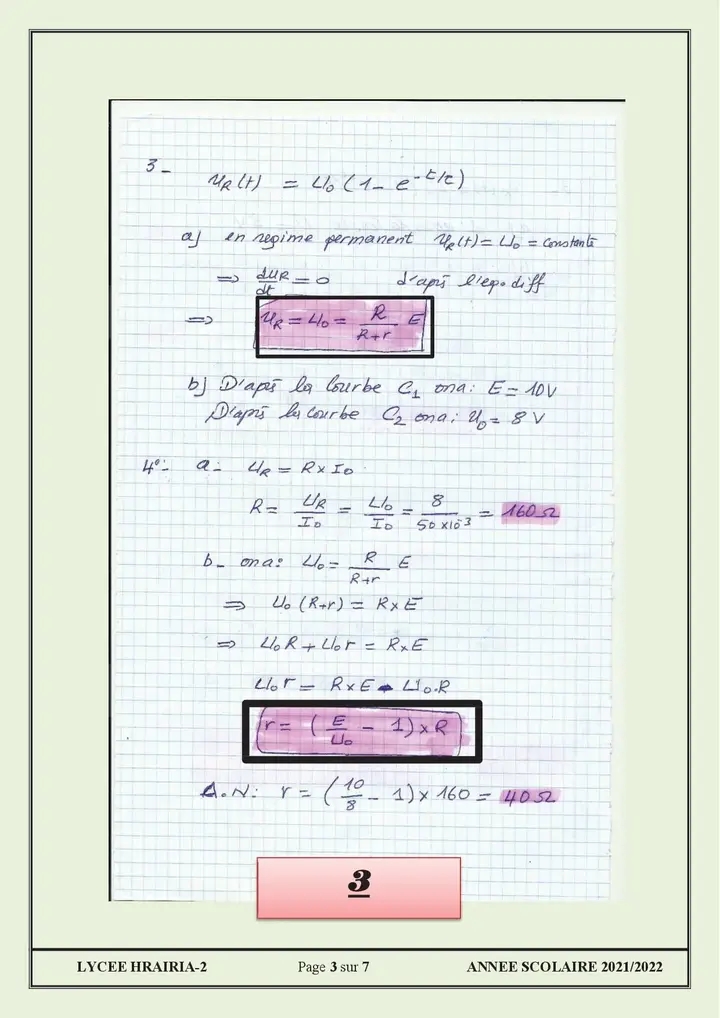 3- u_R(t) = U₀(1- e^-t/τ)
a) en regime permanent u_R(t) = U₀ = constante
⇒ dU_R/dt = 0 d'après l'eq.diff
⇒ u_R = U₀ = R/(R+r) E
b) D'après la courbe C₁ ona: E = 10V
D'après la courbe C₂ ona: U₀ = 8 V
4°- a- U_R = R x I₀
R = U_R/I₀ = U₀/I₀ = 8/(50 x 10⁻³) = 160Ω
b- ona: U₀ = R/(R+r) E
⇒ U₀(R+r) = R x E
⇒ U₀R + U₀r = R x E
U₀r = R x E - U₀.R
r = (E/U₀ - 1) x R
A.N: r = (10/8 - 1) x 160 = 40Ω
3
LYCEE HRAIRIA-2 Page 3 sur 7 ANNEE SCOLAIRE 2021/2022